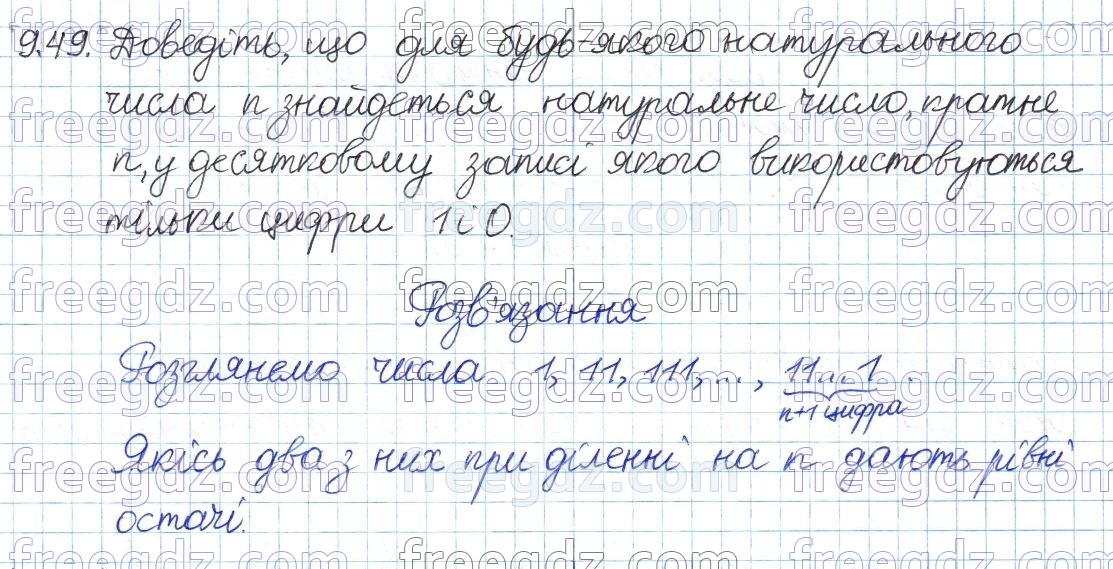 9.49. Доведіть, що для будь-якого натурального
числа n знайдеться натуральне число, кратне
n, у десятковому записі якого використовуються
тільки цифри 1 і 0.
Розв'язання
Розглянемо числа 1, 11, 111, ..., 11...1.
n+1 цифра
Якісь два з них при діленні на n дають рівні
остачі.
freegdz.com